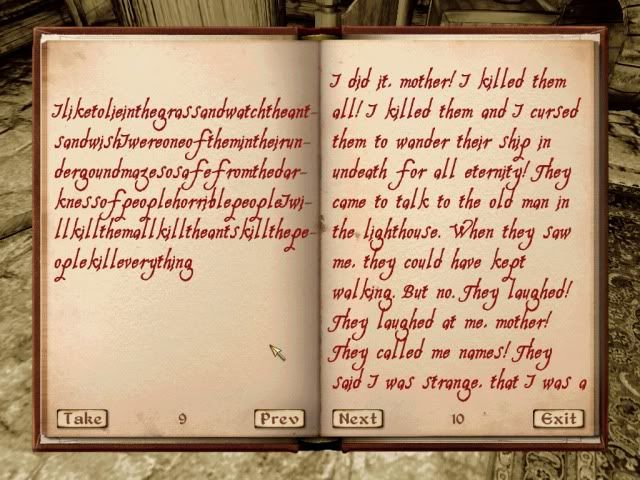 Iliketolieinthegrassandwatchtheant-
sandwishIwereoneofthemintheirun-
dergoundmazesosafefromthedar-
knessofpeoplehorriblepeopleIwi-
llkillthemallkilltheantskillthepe-
oplekilleverything
Take
9
Prev
I did it, mother! I killed them
all! I killed them and I cursed
them to wander their ship in
undeath for all eternity! They
came to talk to the old man in
the lighthouse. When they saw
me, they could have kept
walking. But no. They laughed!
They laughed at me, mother!
They called me names! They
said I was strange, that I was a
Next
10
Exit